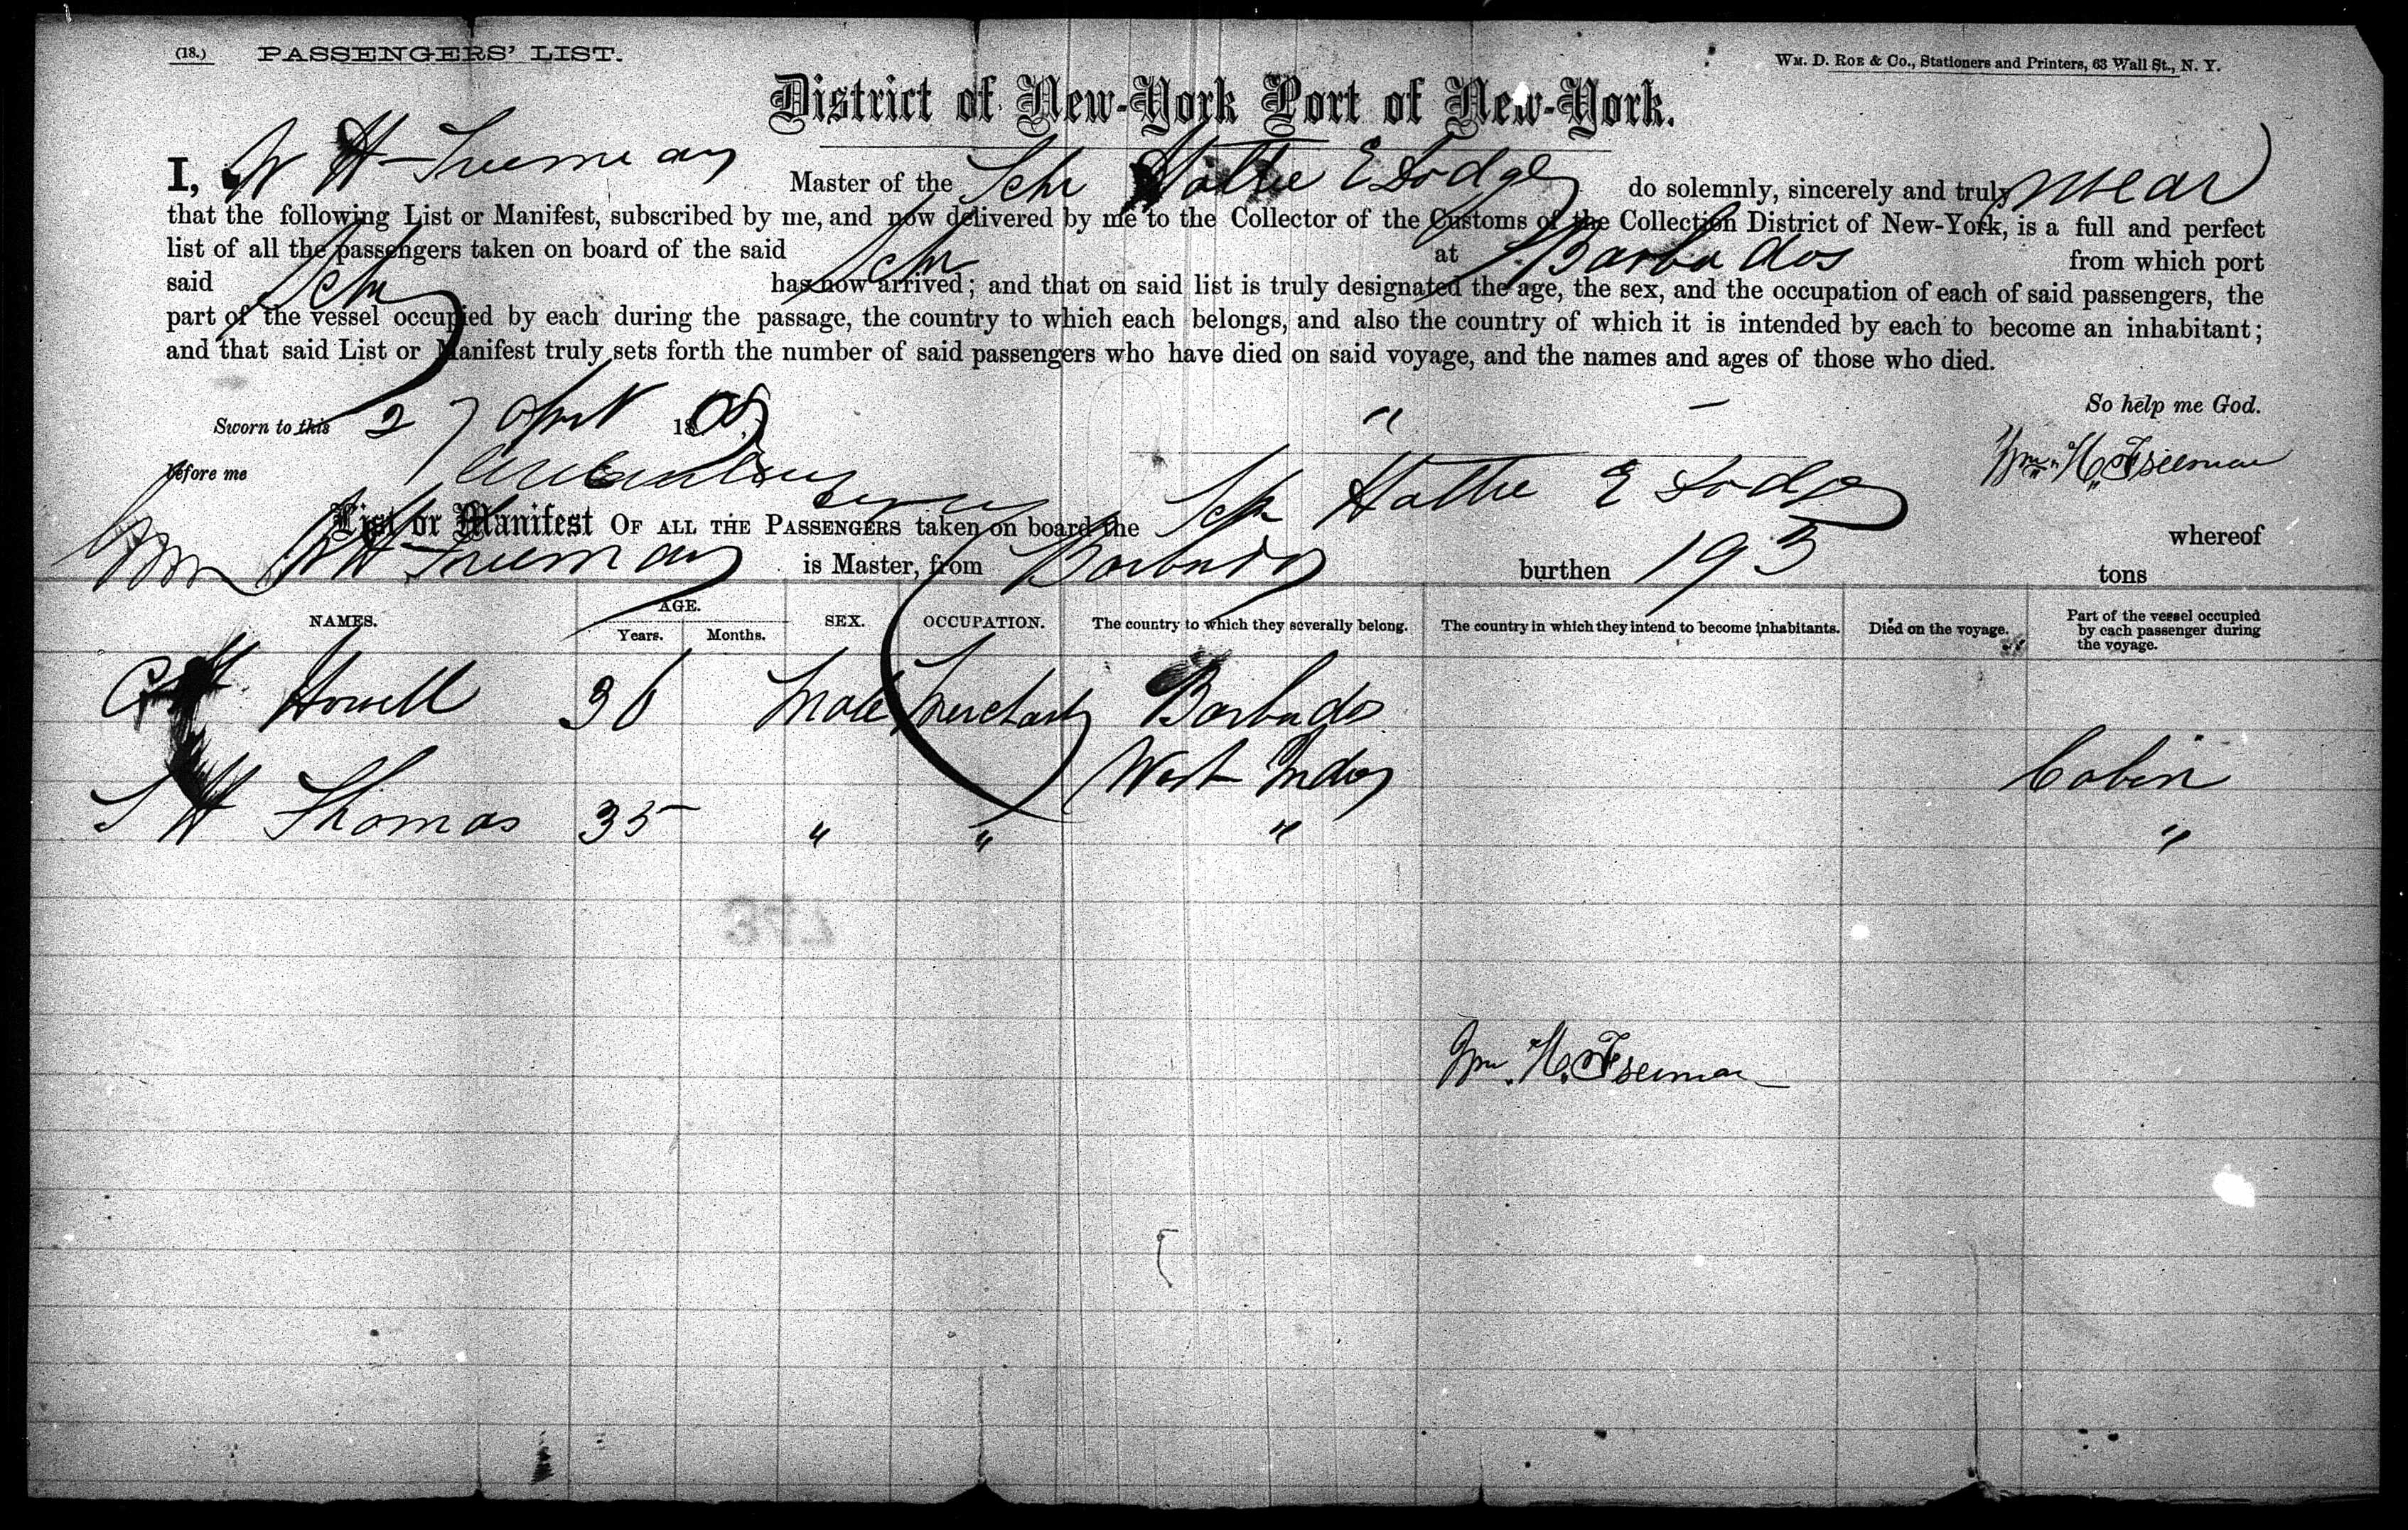 (18.) PASSENGERS' LIST.
WM. D. ROE & Co., Stationers and Printers, 63 Wall St., N. Y.
District of New-York Port of New-York.
I, W H Freeman Master of the Schr Hattie E Dodge do solemnly, sincerely and truly swear
that the following List or Manifest, subscribed by me, and now delivered by me to the Collector of the Customs of the Collection District of New-York, is a full and perfect
list of all the passengers taken on board of the said Schr at Barbados from which port
said Schr has now arrived; and that on said list is truly designated the age, the sex, and the occupation of each of said passengers, the
part of the vessel occupied by each during the passage, the country to which each belongs, and also the country of which it is intended by each to become an inhabitant;
and that said List or Manifest truly sets forth the number of said passengers who have died on said voyage, and the names and ages of those who died.
So help me God.
Sworn to this 27 April 18
before me
Wm. H. Freeman
List or Manifest OF ALL THE PASSENGERS taken on board the Schr Hattie E Dodge whereof
W H Freeman is Master, from Barbados burthen 193 tons
NAMES. AGE. Years. Months. SEX. OCCUPATION. The country to which they severally belong. The country in which they intend to become inhabitants. Died on the voyage. Part of the vessel occupied by each passenger during the voyage.
Howell 36 Male Merchant Barbados
West Indies Cabin
S H Thomas 35 " " " "
347
Wm. H. Freeman